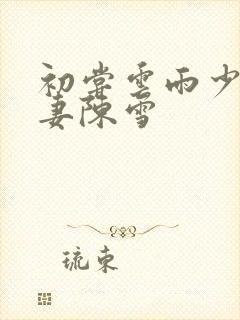 初尝云雨少
妻陈雪
琉束